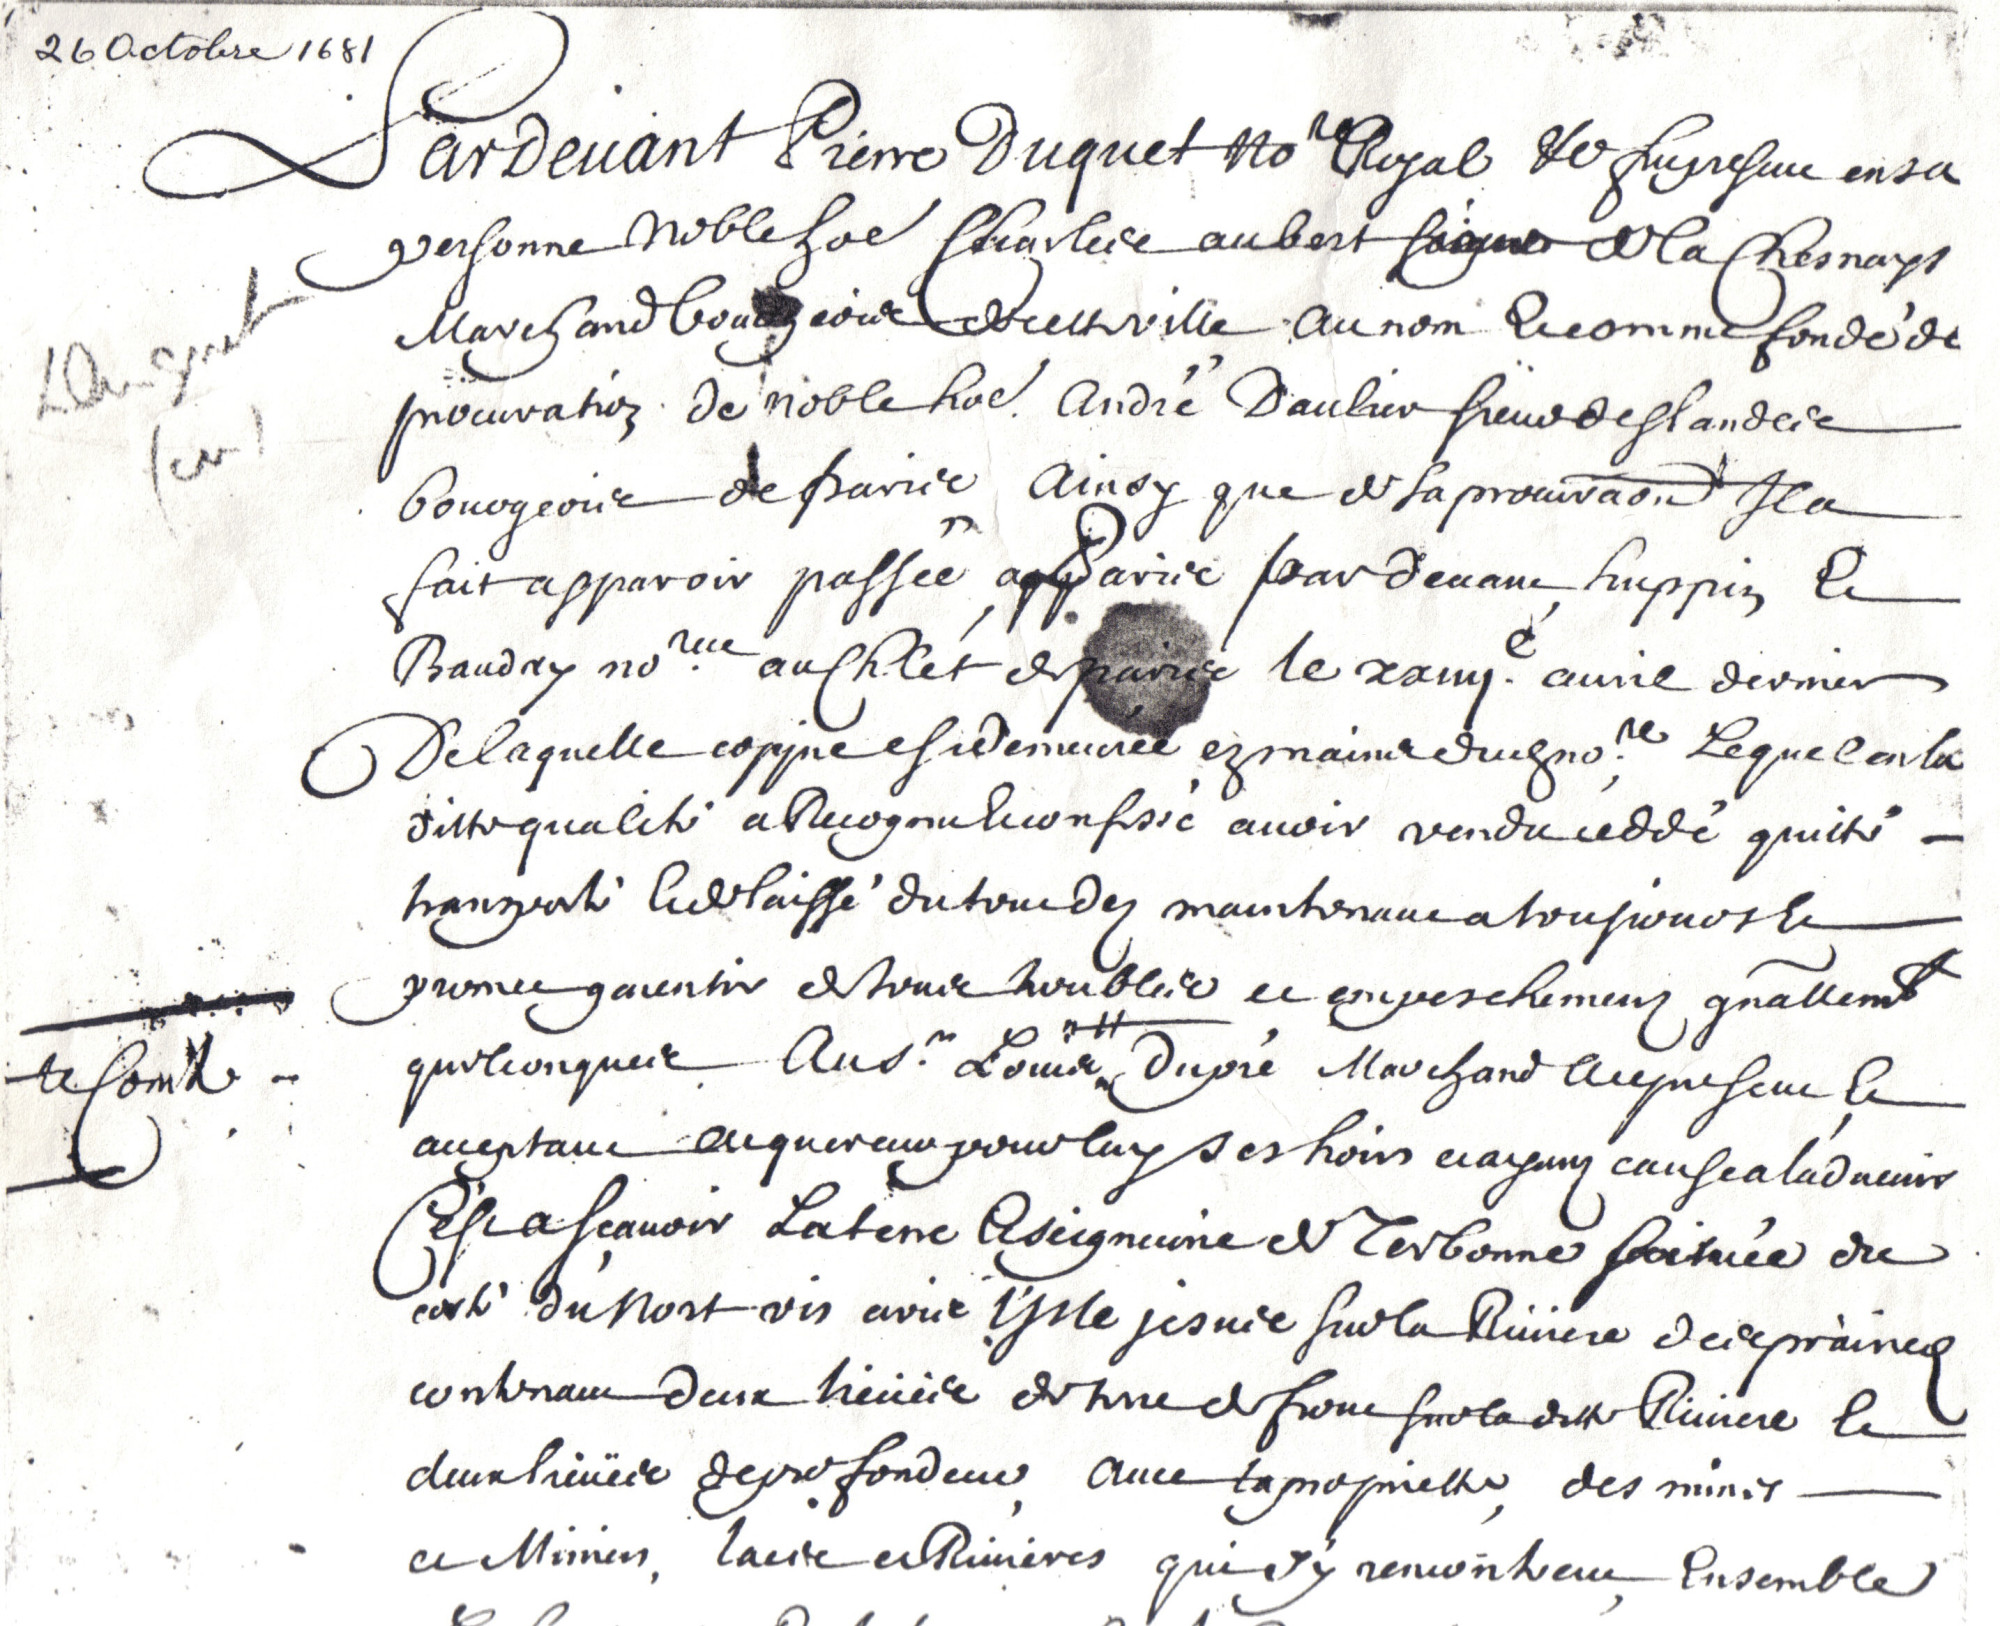 26 Octobre 1681
Pardeuant Pierre Duquet no.re Royal &c fut present en sa
personne noble hoé Charles aubert de la Chesnays
Marchand bourgeois de cette ville au nom & comme fondé de
procuration de noble hoé. André Daulier sieur deslandes
bourgeois de paris Ainsy que de sa procuraon Il a
fait apparoir passée a paris pardeuant huppin &
Baudry no.res au Chlet de paris le auril dernier
De laquelle coppie est demeurée ez mains dud no.re Lequel en la
ditte qualité a Recognu & confessé auoir vendu ceddé quitté
transporté & delaissé du tout dez maintenant a toujours &
promet garentir de tous troubles et empeschemens gnallemt
quelconques Au s.r Louis Dupré Marchand a ce present &
acceptant acquereur pour luy ses hoirs et ayans cause a laduenir
C'est a scauoir La terre & seigneurie de Terbonne scituée du
costé du Nort vis a vis l'Isle jesus sur la Riuiere des prairies
contenant deux lieües de terre de front sur la ditte Riuiere &
deux lieües de profondeur, Auec la propriette, des mines
et Minieres, lacs et Riuieres qui s'y rencontrent, Ensemble